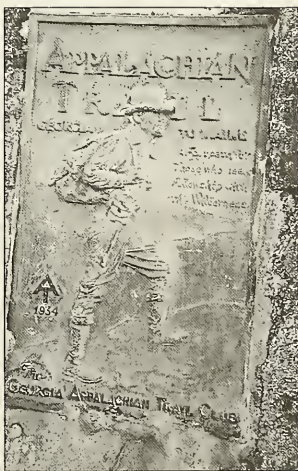 APPALACHIAN
TRAIL
GEORGIA TO MAINE
A Footpath for
Those who seek
Fellowship with
the Wilderness
A
1934
The
GEORGIA APPALACHIAN TRAIL CLUB